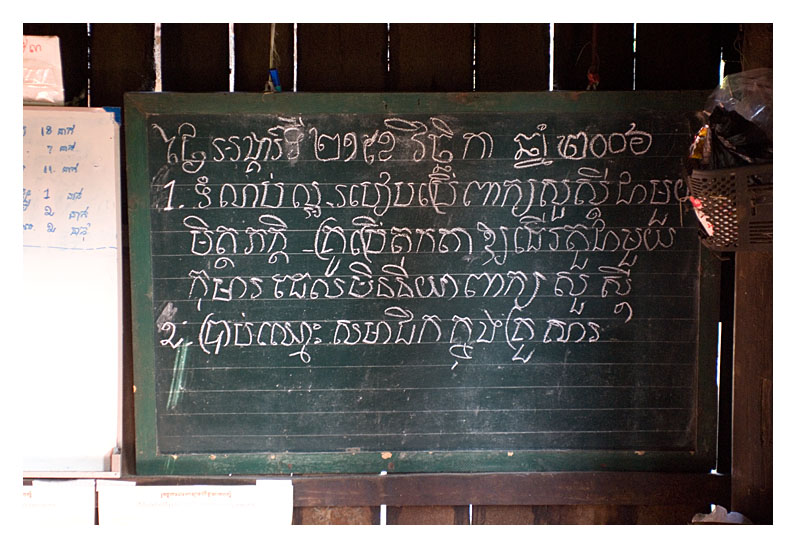 ថ្ងៃអង្គារ៍ទី ២១ ខែ វិច្ឆិកា ឆ្នាំ ២០០៦
1. ទំលាប់ល្អ-របៀបប្រើពាក្យសួស្តីជាមួយ
មិត្តភក្តិ -គ្រូប្រើតុកតាឱ្យដើរតួជាមួយ
កុមារ ដែលមិននិយាពាក្យ សួស្តី
2. ប្រាប់ឈ្មោះ សមាជិកក្នុងគ្រួសារ
18 នាក់
នាក់
11 នាក់
1 នាក់
2 នាក់